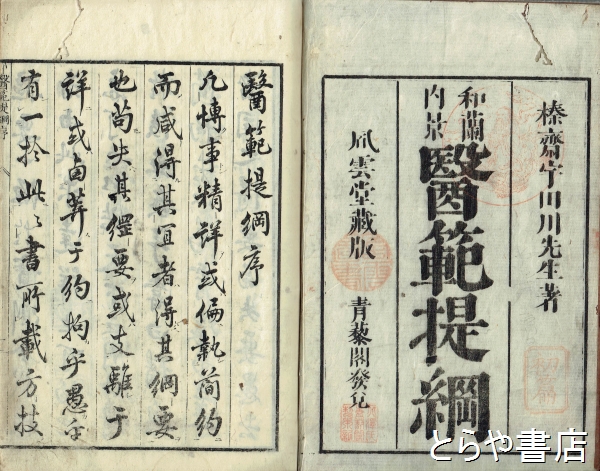 榛齋宇田川先生著
和蘭
内景
醫範提綱
風雲堂藏版
青藜閣發兌
醫範提綱序
凡博事精詳或偏執簡約
而咸得其宜者得其綱要
也苟失其經要或支離于
詳或鹵莽于約拘乎愚
有一於此以書所載方技
醫範提綱序
とらや書店